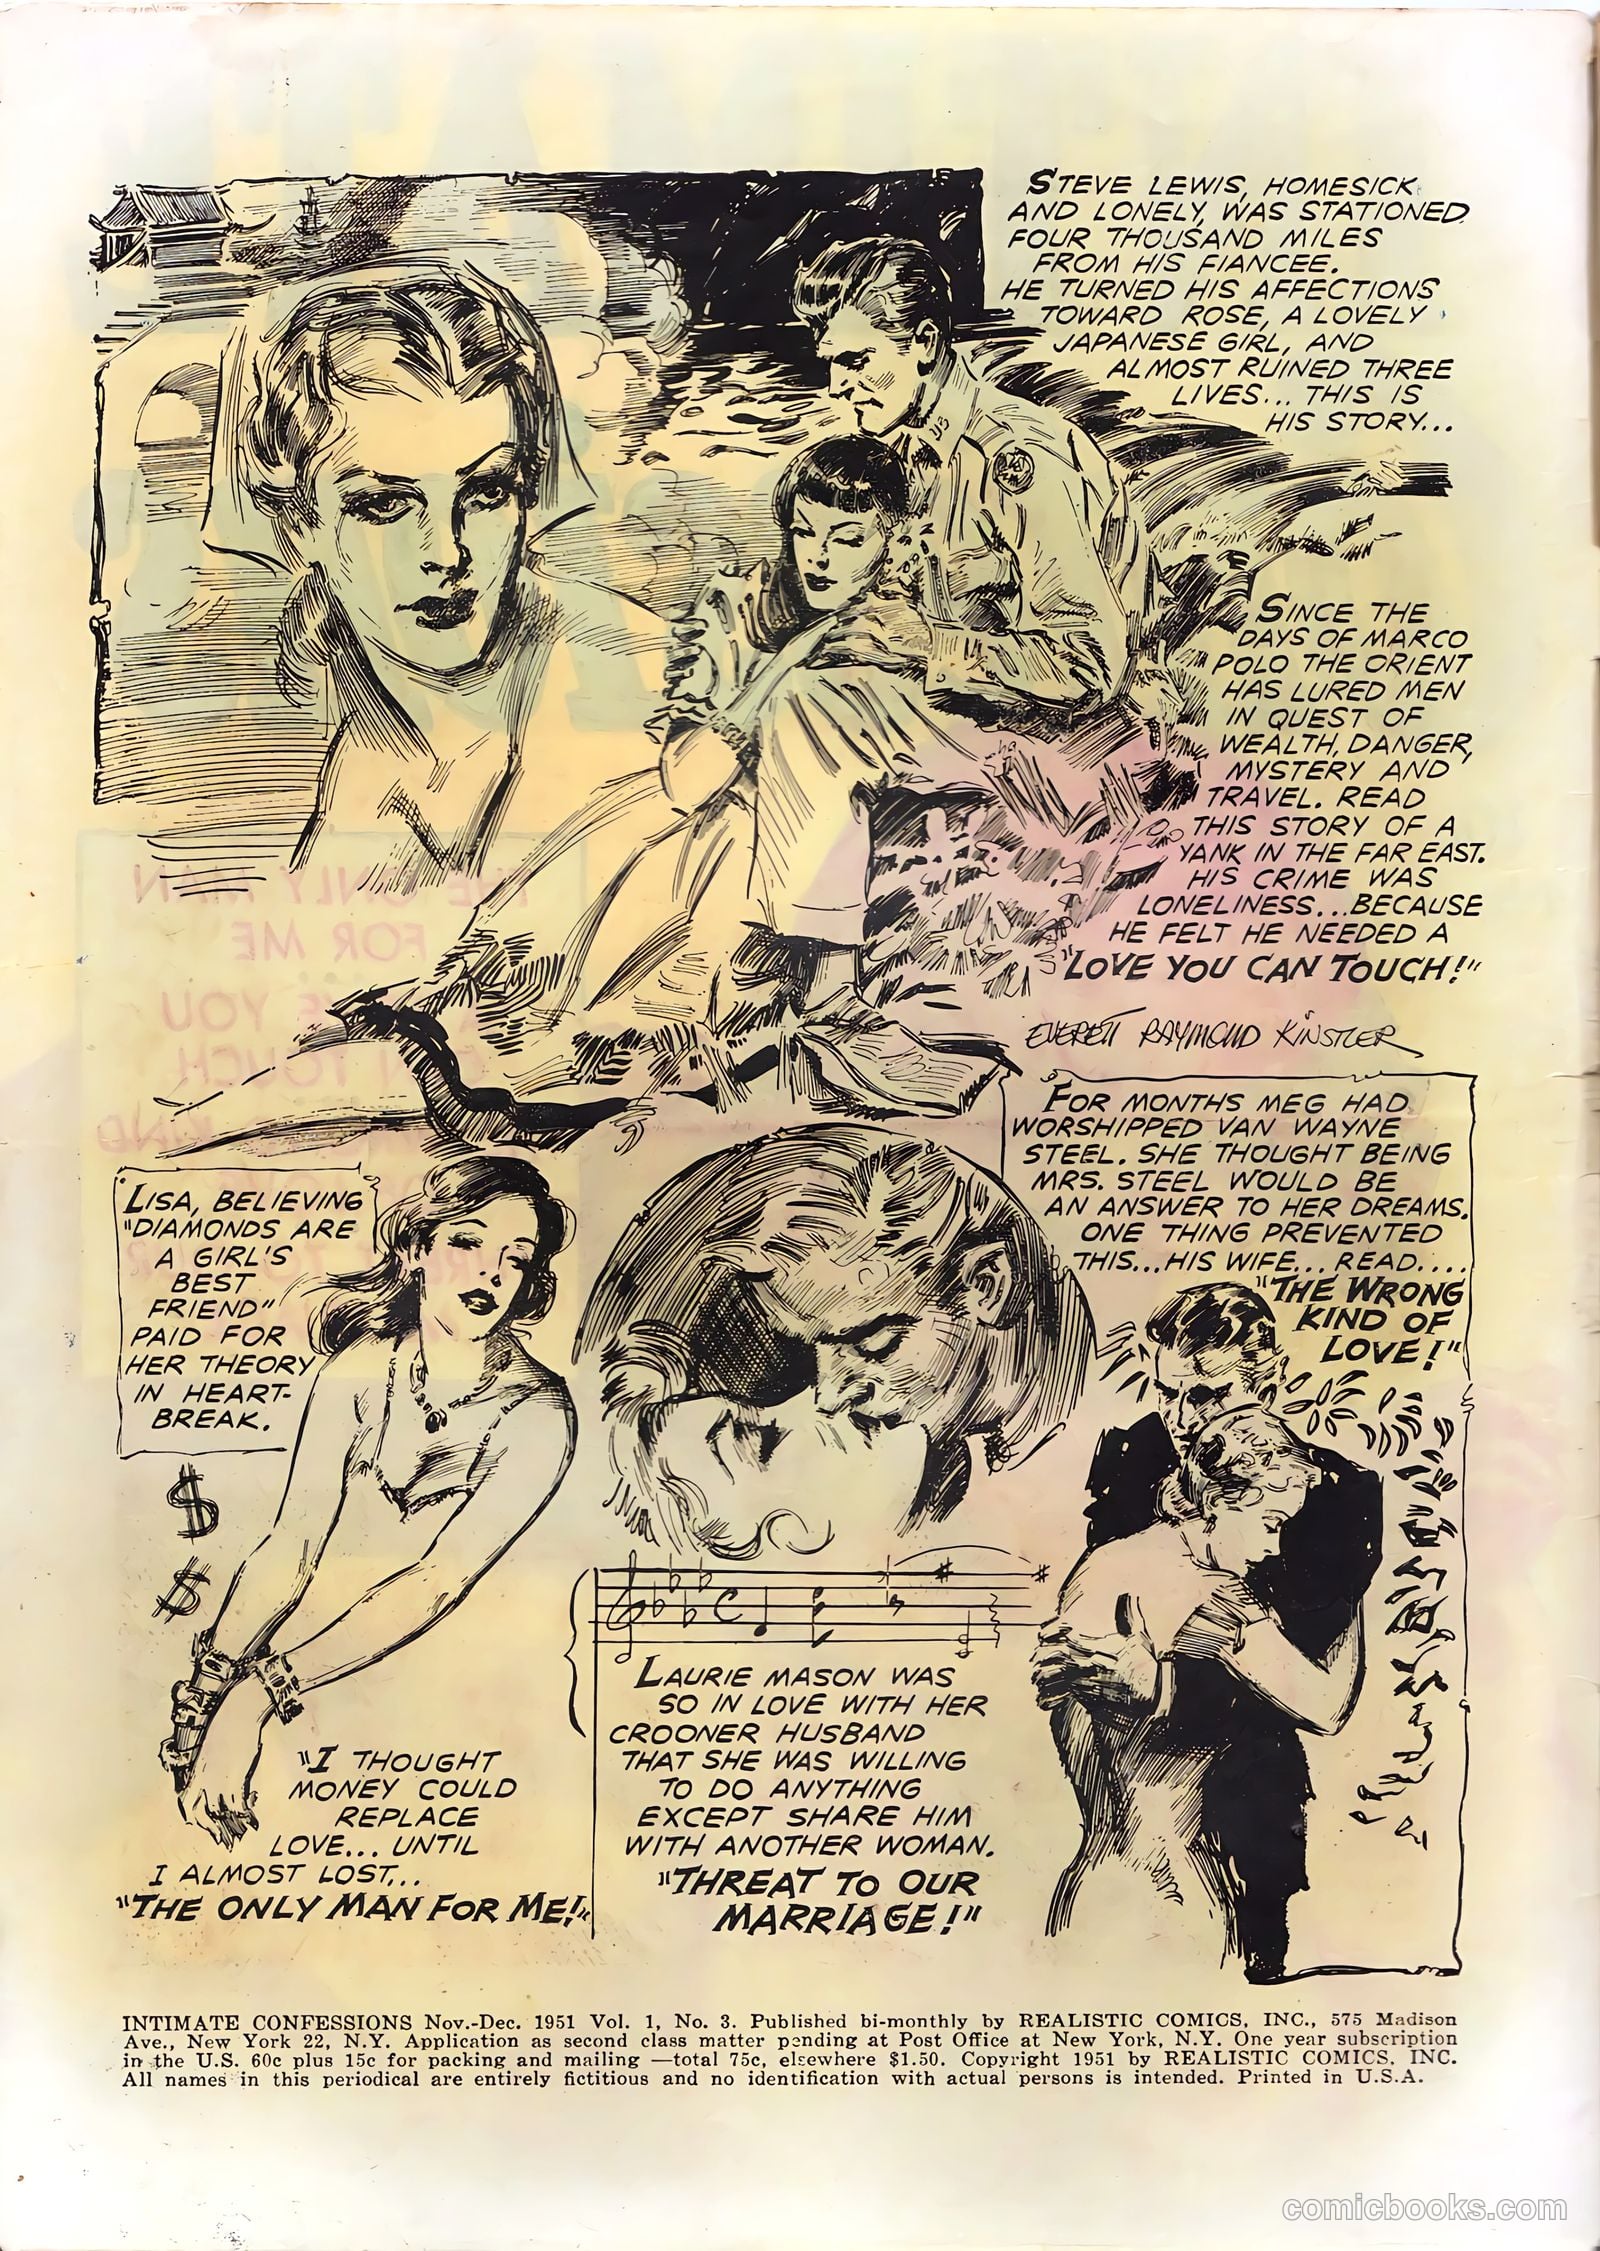 STEVE LEWIS, HOMESICK
AND LONELY, WAS STATIONED
FOUR THOUSAND MILES
FROM HIS FIANCEE.
HE TURNED HIS AFFECTIONS
TOWARD ROSE, A LOVELY
JAPANESE GIRL, AND
ALMOST RUINED THREE
LIVES... THIS IS
HIS STORY...
US
SINCE THE
DAYS OF MARCO
POLO THE ORIENT
HAS LURED MEN
IN QUEST OF
WEALTH, DANGER,
MYSTERY AND
TRAVEL. READ
THIS STORY OF A
YANK IN THE FAR EAST.
HIS CRIME WAS
LONELINESS...BECAUSE
HE FELT HE NEEDED A
"LOVE YOU CAN TOUCH!"
EVERETT RAYMOND KINSTLER
LISA, BELIEVING
"DIAMONDS ARE
A GIRL'S
BEST
FRIEND"
PAID FOR
HER THEORY
IN HEART-
BREAK.
$
$
"I THOUGHT
MONEY COULD
REPLACE
LOVE... UNTIL
I ALMOST LOST...
"THE ONLY MAN FOR ME!"
LAURIE MASON WAS
SO IN LOVE WITH HER
CROONER HUSBAND
THAT SHE WAS WILLING
TO DO ANYTHING
EXCEPT SHARE HIM
WITH ANOTHER WOMAN.
"THREAT TO OUR
MARRIAGE!"
FOR MONTHS MEG HAD
WORSHIPPED VAN WAYNE
STEEL. SHE THOUGHT BEING
MRS. STEEL WOULD BE
AN ANSWER TO HER DREAMS.
ONE THING PREVENTED
THIS...HIS WIFE... READ....
"THE WRONG
KIND OF
LOVE!"
INTIMATE CONFESSIONS Nov.-Dec. 1951 Vol. 1, No. 3. Published bi-monthly by REALISTIC COMICS, INC., 575 Madison
Ave., New York 22, N.Y. Application as second class matter pending at Post Office at New York, N.Y. One year subscription
in the U.S. 60c plus 15c for packing and mailing —total 75c, elsewhere $1.50. Copyright 1951 by REALISTIC COMICS, INC.
All names in this periodical are entirely fictitious and no identification with actual persons is intended. Printed in U.S.A.
comicbooks.com